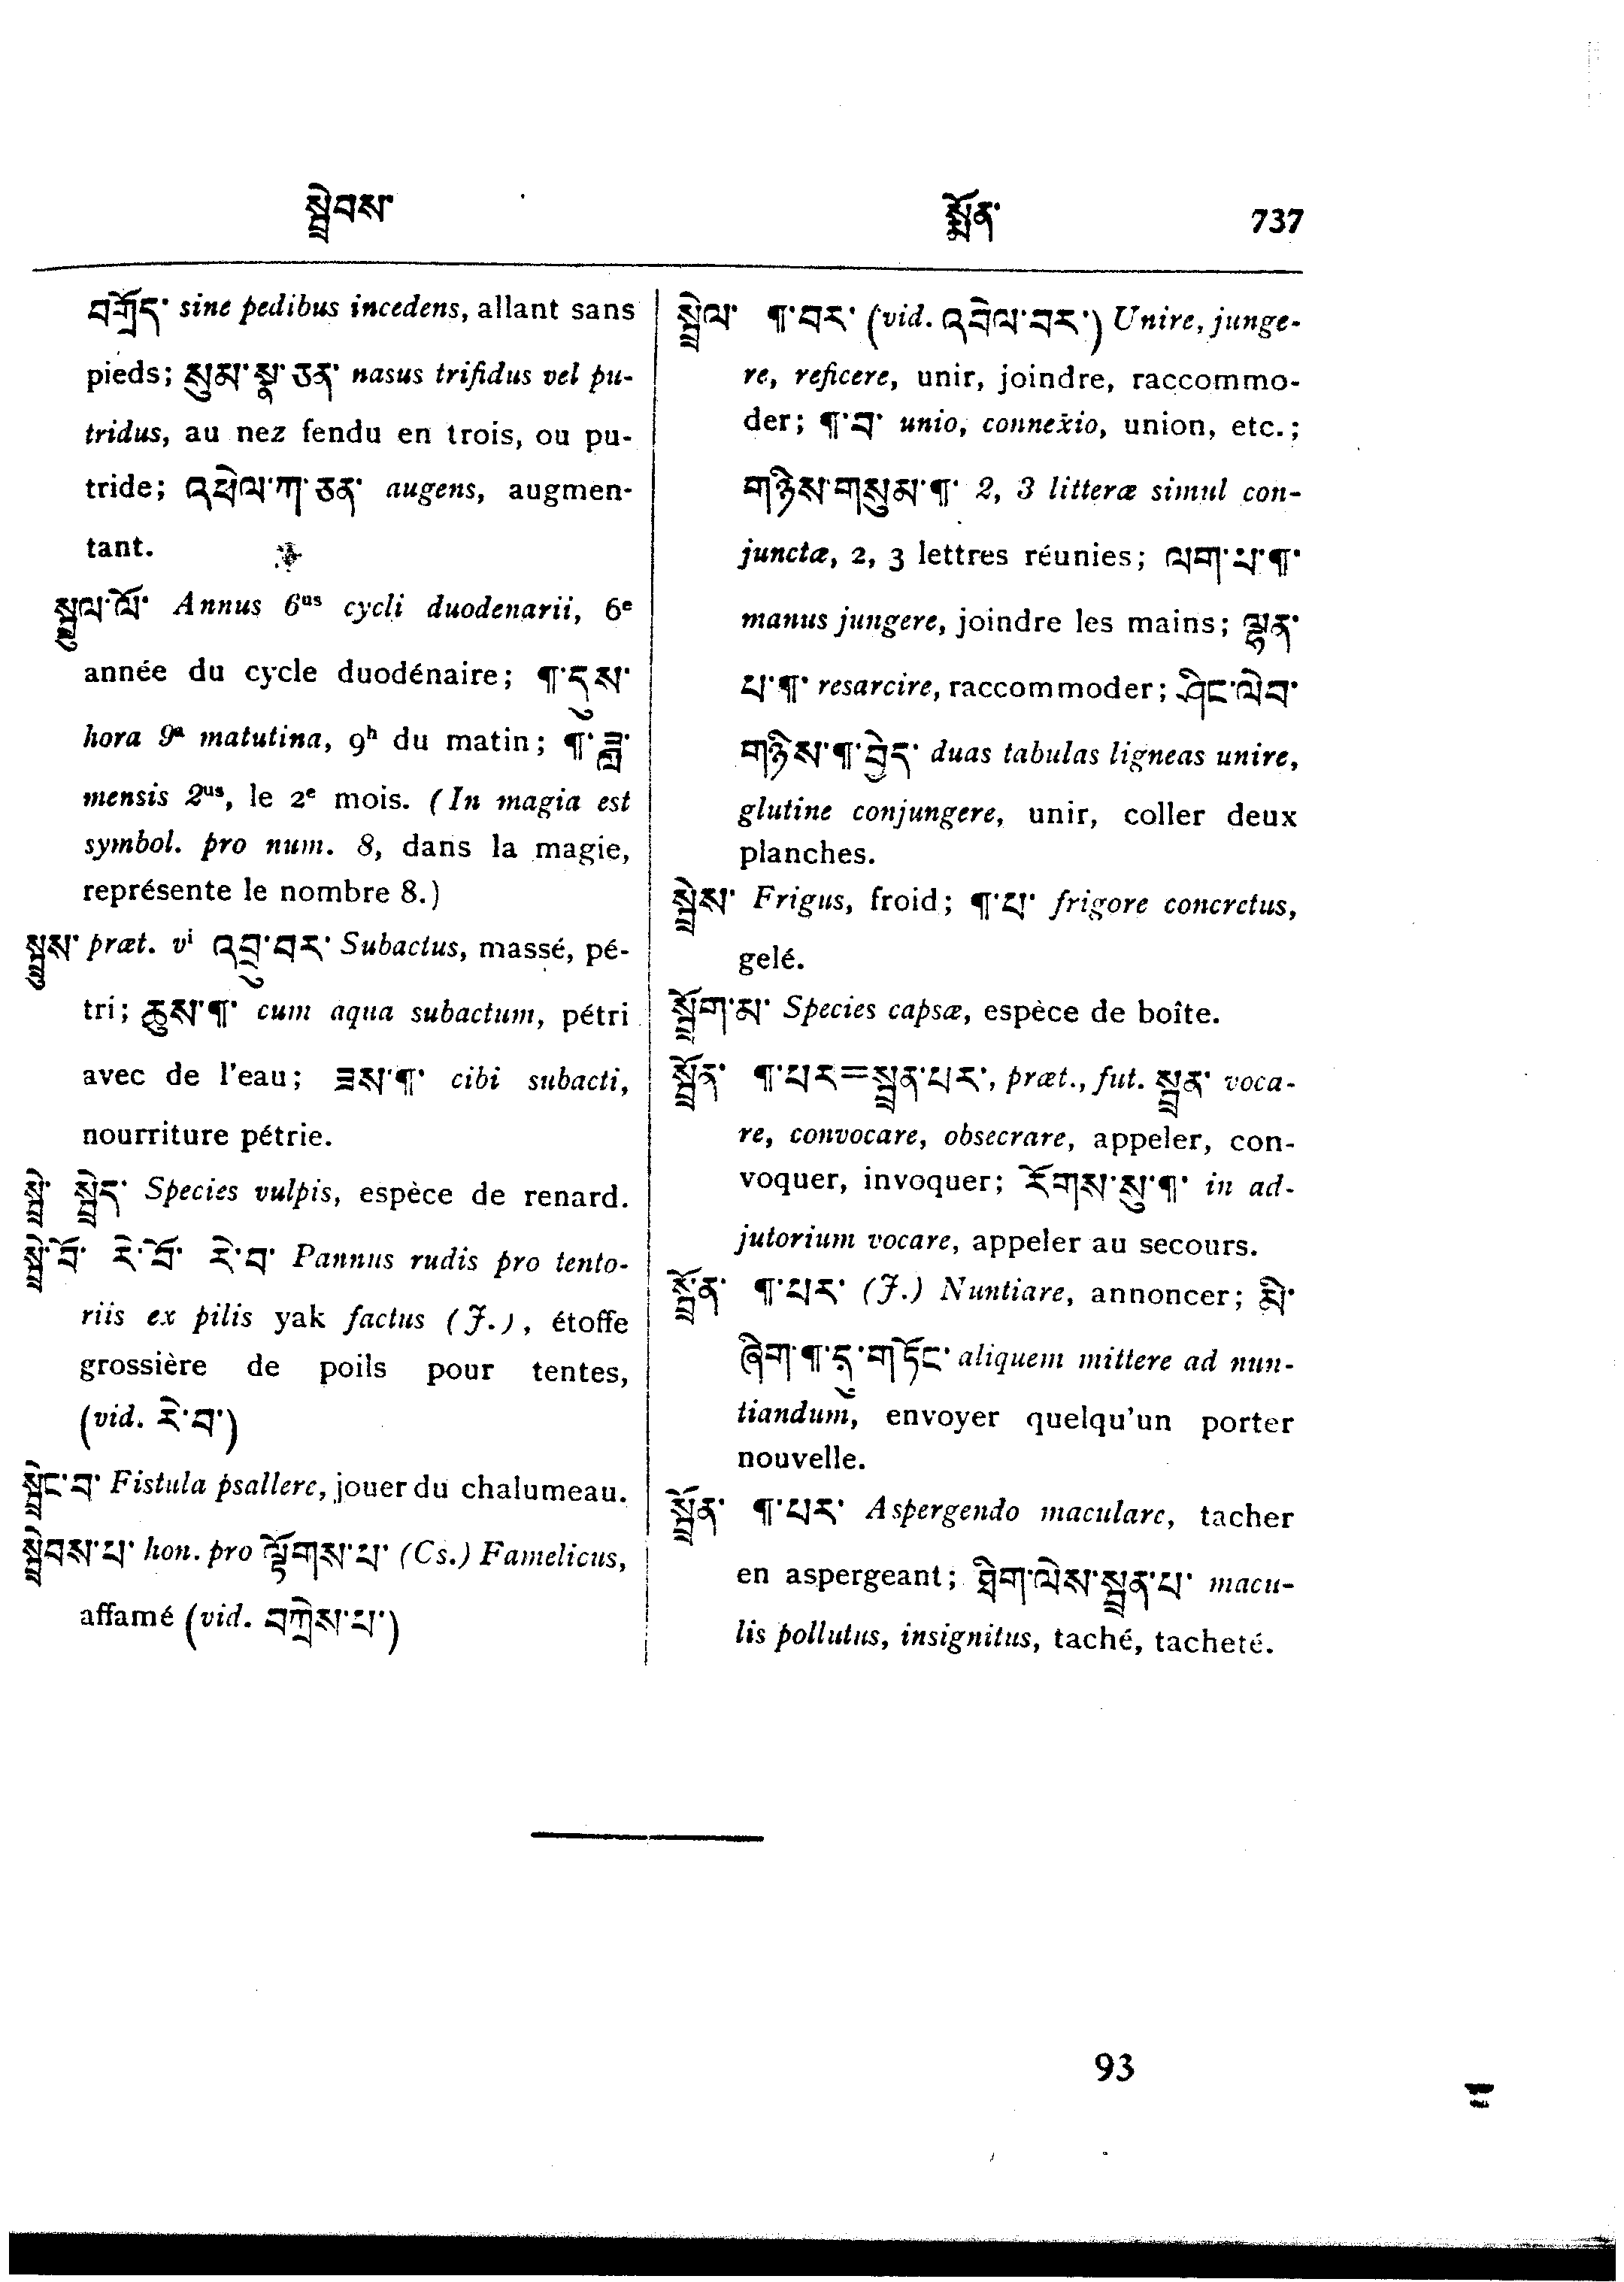 སྦྲེབས་
སྦྲོན་ 737
བགྲོད་ sine pedibus incedens, allant sans
pieds; སུམ་སྣ་ཅན་ nasus trifidus vel pu-
tridus, au nez fendu en trois, ou pu-
tride; འཕེལ་ཀ་ཅན་ augens, augmen-
tant.
སྦྲུལ་ལོ་ Annus 6us cycli duodenarii, 6e
année du cycle duodénaire; ¶་དུས་
hora 9a matutina, 9h du matin; ¶་ཟླ་
mensis 2us, le 2e mois. (In magia est
symbol. pro num. 8, dans la magie,
représente le nombre 8.)
སྦྲུས་ præt. vi འབྲུ་བར་ Subactus, massé, pé-
tri; ཆུས་¶་ cum aqua subactum, pétri
avec de l'eau; ཟས་¶་ cibi subacti,
nourriture pétrie.
སྦྲེ་ སྦྲེད་ Species vulpis, espèce de renard.
སྦྲེ་བོ་ རེ་བོ་ རེ་བ་ Pannus rudis pro tento-
riis ex pilis yak factus (J.), étoffe
grossière de poils pour tentes,
(vid. རེ་བ་)
སྦྲེང་བ་ Fistula psallere, jouer du chalumeau.
སྦྲེབས་པ་ hon. pro ལྟོགས་པ་ (Cs.) Famelicus,
affamé (vid. བཀྲེས་པ་)
སྦྲེལ་ ¶་བར་ (vid. འབྲེལ་བར་) Unire, junge-
re, reficere, unir, joindre, raccommo-
der; ¶་བ་ unio, connexio, union, etc.;
གཉིས་གསུམ་¶་ 2, 3 litteræ simul con-
junctæ, 2, 3 lettres réunies; ལག་པ་¶་
manus jungere, joindre les mains; ལྷན་
པ་¶་ resarcire, raccommoder; ཤིང་ལེབ་
གཉིས་¶་བྱེད་ duas tabulas ligneas unire,
glutine conjungere, unir, coller deux
planches.
སྦྲེས་ Frigus, froid; ¶་པ་ frigore concretus,
gelé.
སྦྲོག་མ་ Species capsæ, espèce de boîte.
སྦྲོན་ ¶་པར=སྦྲན་པར་, præt., fut. སྦྲན་ voca-
re, convocare, obsecrare, appeler, con-
voquer, invoquer; རོགས་སུ་¶་ in ad-
jutorium vocare, appeler au secours.
སྦྲོན་ ¶་པར་ (J.) Nuntiare, annoncer; མི་
ཞིག་¶་དུ་གཏོང་ aliquem mittere ad nun-
tiandum, envoyer quelqu'un porter
nouvelle.
སྦྲོན་ ¶་པར་ Aspergendo maculare, tacher
en aspergeant; ཐིག་ལེས་སྦྲན་པ་ macu-
lis pollutus, insignitus, taché, tacheté.
93